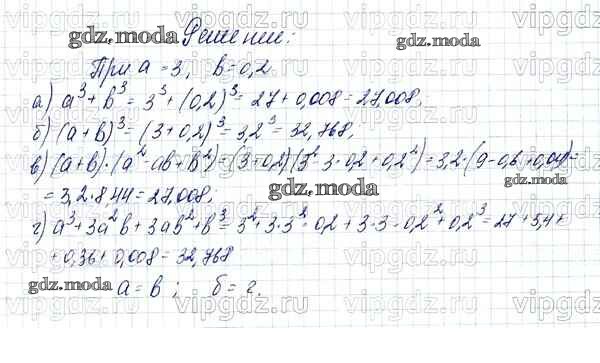 vipgdz.ru vipgdz.ru vipgdz.ru vipgdz.ru
gdz.moda Решение: gdz.moda
При a = 3, b = 0,2
а) a³ + b³ = 3³ + (0,2)³ = 27 + 0,008 = 27,008,
б) (a+b)³ = (3+0,2)³ = 3,2³ = 32,768,
в) (a+b)·(a²-ab+b²) = (3+0,2)(3²-3·0,2+0,2²) = 3,2·(9-0,6+0,04) =
= 3,2·8,44 = 27,008,
gdz.moda gdz.moda
г) a³+3a²b+3ab²+b³ = 3²+3·3²·0,2+3·3·0,2²+0,2³ = 27+5,4+
+0,36+0,008 = 32,768
gdz.moda а = в; б = г.